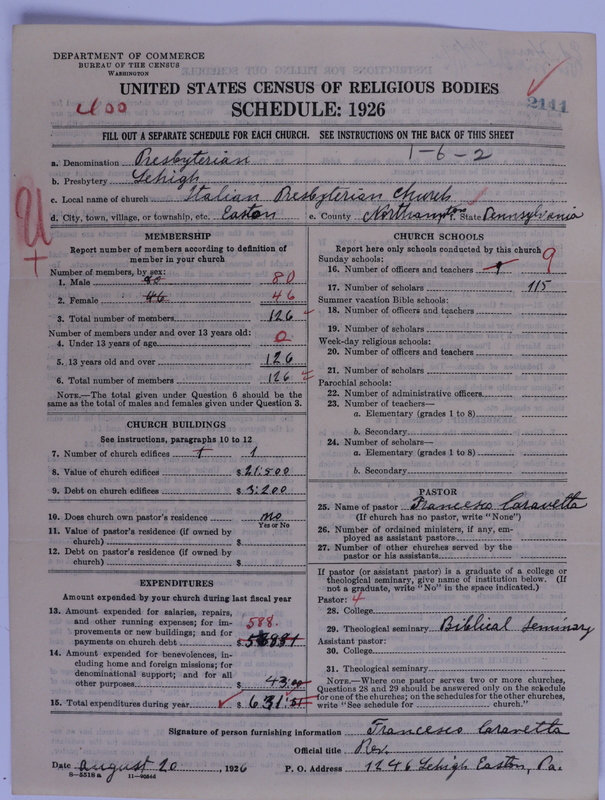 DEPARTMENT OF COMMERCE
BUREAU OF THE CENSUS
WASHINGTON
UNITED STATES CENSUS OF RELIGIOUS BODIES
SCHEDULE: 1926
2111
FILL OUT A SEPARATE SCHEDULE FOR EACH CHURCH. SEE INSTRUCTIONS ON THE BACK OF THIS SHEET
1-6-2
a. Denomination Presbyterian
b. Presbytery Lehigh
c. Local name of church Italian Presbyterian Church
d. City, town, village, or township, etc. Easton e. County Northampton State Pennsylvania
MEMBERSHIP
Report number of members according to definition of
member in your church
Number of members, by sex:
1. Male 80
2. Female 46 46
3. Total number of members 126
Number of members under and over 13 years old:
4. Under 13 years of age 0
5. 13 years old and over 126
6. Total number of members 126
NOTE.—The total given under Question 6 should be
same as the total of males and females given under Question 3.
CHURCH BUILDINGS
See instructions, paragraphs 10 to 12
7. Number of church edifices 1 1
8. Value of church edifices $ 21.500
9. Debt on church edifices $ 3.200
10. Does church own pastor's residence no
Yes or No
11. Value of pastor's residence (if owned by
church) $
12. Debt on pastor's residence (if owned by
church) $
EXPENDITURES
Amount expended by your church during last fiscal year
13. Amount expended for salaries, repairs,
and other running expenses; for im-
provements or new buildings; and for
payments on church debt $ 588.
14. Amount expended for benevolences, in-
cluding home and foreign missions; for
denominational support; and for all
other purposes $ 43.00
15. Total expenditures during year $ 631.51
CHURCH SCHOOLS
Report here only schools conducted by this church
Sunday schools:
16. Number of officers and teachers 9 9
17. Number of scholars 115
Summer vacation Bible schools:
18. Number of officers and teachers
19. Number of scholars
Week-day religious schools:
20. Number of officers and teachers
21. Number of scholars
Parochial schools:
22. Number of administrative officers
23. Number of teachers—
a. Elementary (grades 1 to 8)
b. Secondary
24. Number of scholars—
a. Elementary (grades 1 to 8)
b. Secondary
PASTOR
25. Name of pastor Francesco Caravetta
(If church has no pastor, write "None")
26. Number of ordained ministers, if any, em-
ployed as assistant pastors
27. Number of other churches served by the
pastor or his assistants
If pastor (or assistant pastor) is a graduate of a college or
theological seminary, give name of institution below. (If
not a graduate, write "No" in the space indicated.)
Pastor: 4
28. College
29. Theological seminary Biblical Seminary
Assistant pastor:
30. College
31. Theological seminary
NOTE.—Where one pastor serves two or more churches,
Questions 28 and 29 should be answered only on the schedule
for one of the churches; on the schedules for the other churches,
write "See schedule for church."
Signature of person furnishing information Francesco Caravetta
Official title Rev.
Date August 20, 1926 P. O. Address 1246 Lehigh Easton, Pa.
8—5518 a